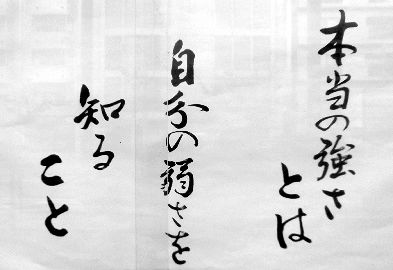 本当の強さ
とは
自分の弱さを
知る
こと